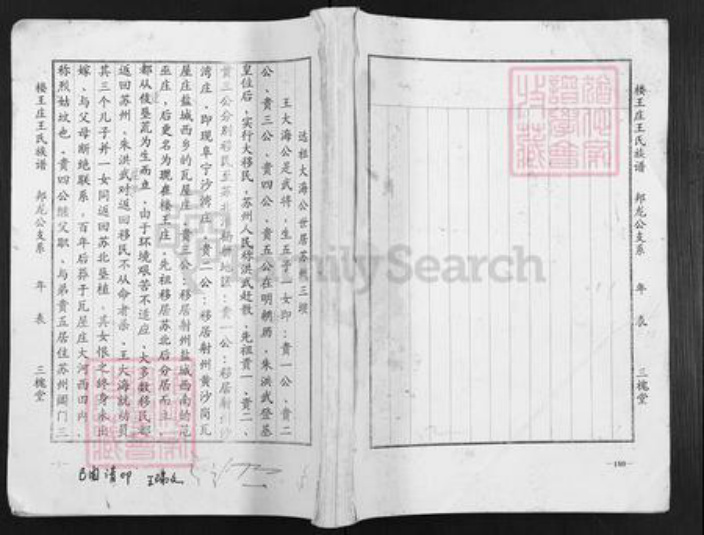 楼王庄王氏族谱　邦龙公支系　年表　三槐堂
—180—
远祖大海公世居苏州三坝
王大海公是武将，生五子一女即：贵一公、贵二
公、贵三公、贵四公、贵五公在明朝历，朱洪武登基
皇位后，实行大移民，苏州人民称洪武赶散，先祖贵一、贵二、
贵三公分别移民至苏北
地区：贵一公：移居
湾庄，即现阜宁沙湾庄，贵二公：移居射州黄沙岗瓦
屋庄盐城西乡的瓦屋庄，贵三公：移居射州盐城西南的范
巫庄，后更名为现在楼王庄，先祖移居苏北后分居而立，
都从伐垦荒为生而立，由于环境艰苦不适应，大多数移民都
返回苏州，朱洪武对返回移民不从命者杀，王大海就动员
其三个儿子并一女同返回苏北垦植，其女恨之终身未出
嫁，与父母断绝联系，百年后葬于瓦屋庄大河西田内，
称烈姑坟也，贵四公继父职，与弟贵五居住苏州阊门三
楼王庄王氏族谱　邦龙公支系　年表　三槐堂
FamilySearch